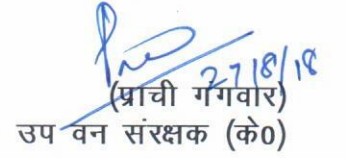 27/8/18
(प्राची गंगवार)
उप वन संरक्षक (के0)